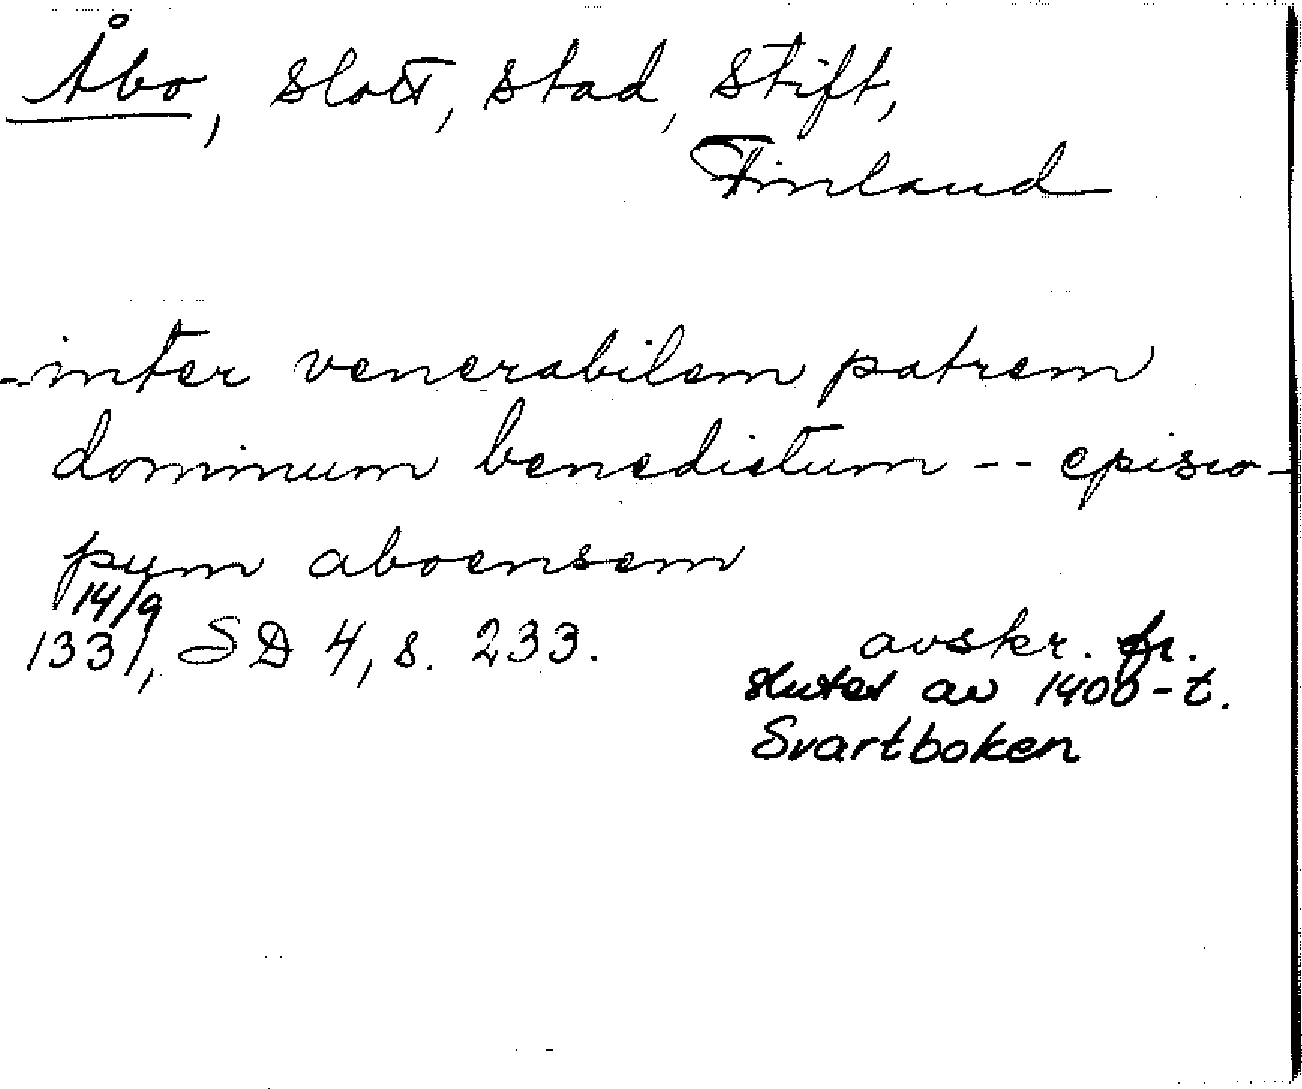 Åbo, slott, stad, stift,
Finland
--inter venerabilem patrem
dominum benedictum -- episco-
pum aboensem
14/9
1331, SD 4, s. 233.
avskr. fr.
slutet av 1400-t.
Svartboken